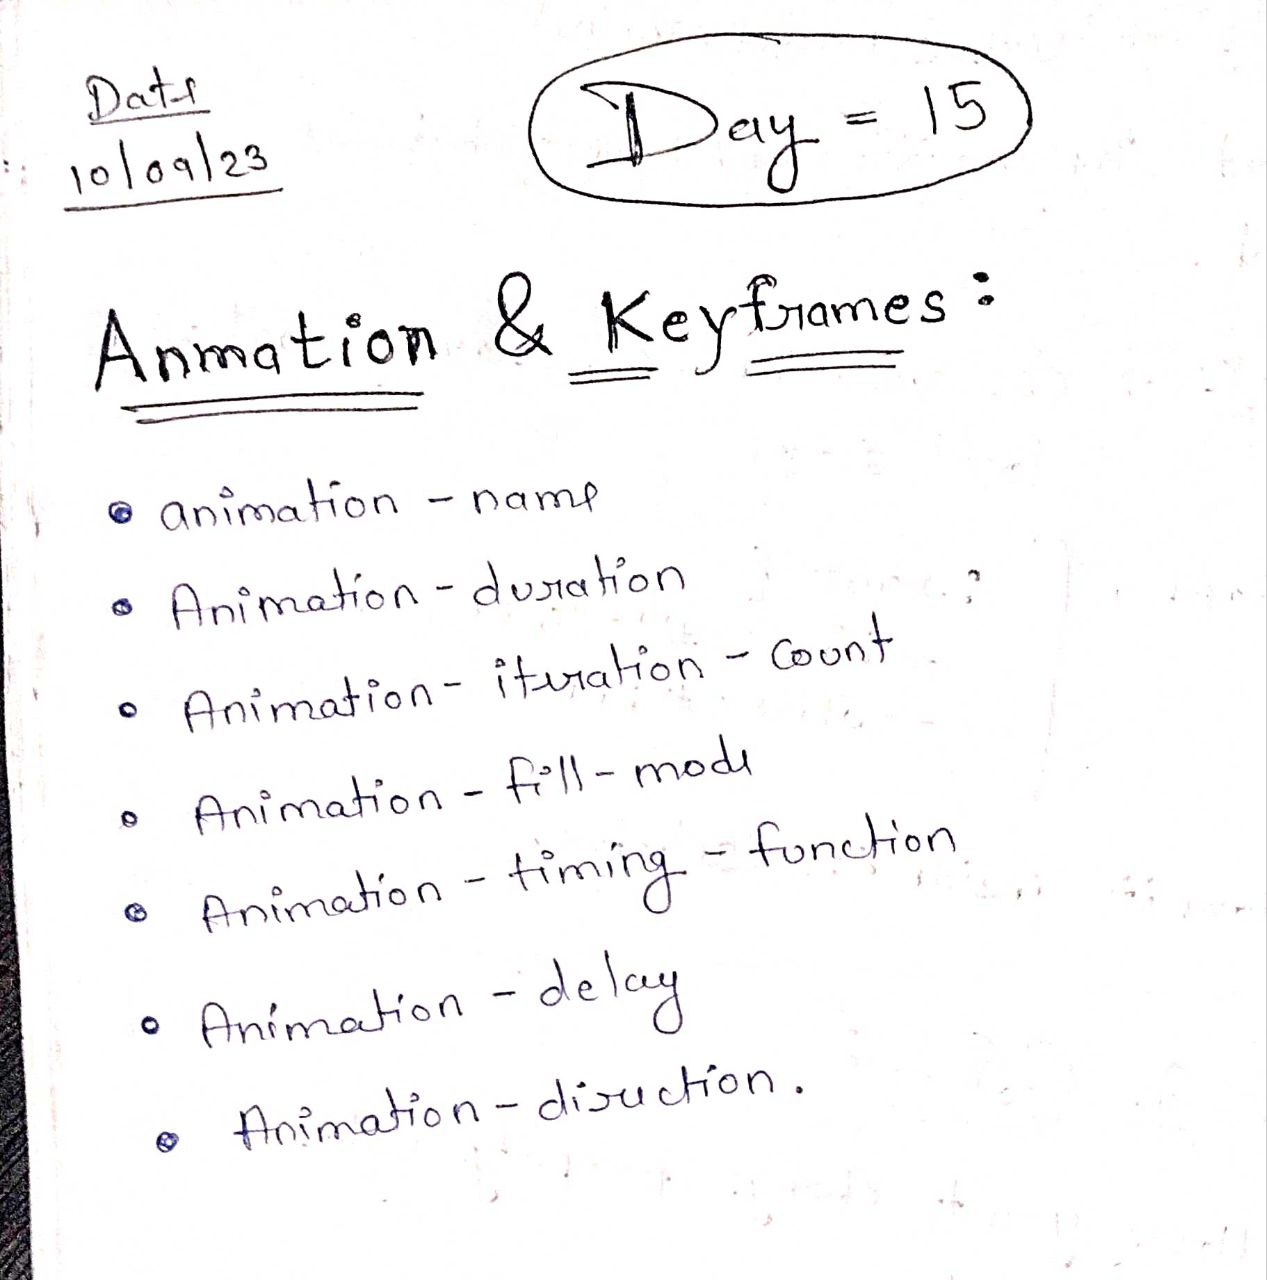 Date
10/09/23
Day = 15
Anmation & Keyframes :
• animation - name
• Animation - duration
• Animation - iteration - count
• Animation - fill - mode
• Animation - timing - function
• Animation - delay
• Animation - direction.